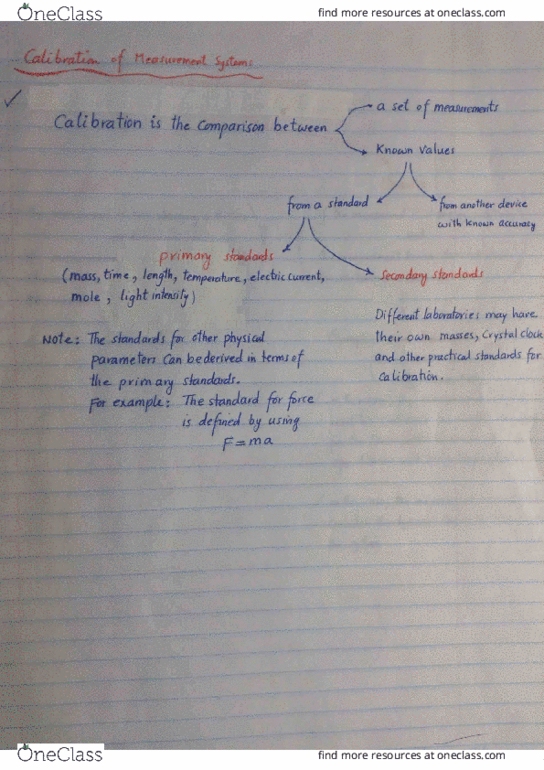 OneClass
find more resources at oneclass.com
Calibration of Measurement Systems
Calibration is the comparison between
a set of measurements
Known Values
from a standard
from another device
with known accuracy
primary standards
(mass, time, length, temperature, electric current,
mole, light intensity)
Secondary standards
Different laboratories may have
their own masses, Crystal clock
and other practical standards for
Calibration.
Note: The standards for other physical
parameters can be derived in terms of
the primary standards.
For example: The standard for force
is defined by using
F=ma
OneClass
find more resources at oneclass.com